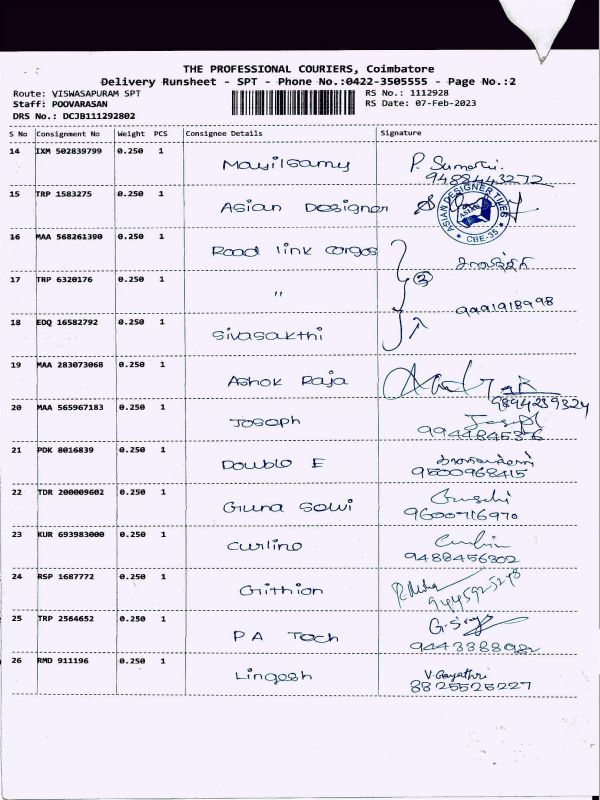 THE PROFESSIONAL COURIERS, Coimbatore
Delivery Runsheet - SPT - Phone No.:0422-3505555 - Page No.:2
Route: VISWASAPURAM SPT
RS No.: 1112928
Staff: POOVARASAN
RS Date: 07-Feb-2023
DRS No.: DCJB111292802
S No Consignment No Weight PCS Consignee Details Signature
14 IXM 502839799 0.250 1 Mayilsamy P. Sumathi
9488443272
15 TRP 1583275 0.250 1 Asian Designer
ASIAN DESIGNER TILES
CBE-35
16 MAA 568261390 0.250 1 Road link cargos
17 TRP 6320176 0.250 1 " 3
9991918998
18 EDQ 16582792 0.250 1 Sivasakthi
19 MAA 283073068 0.250 1 Ashok Raja
9894259324
20 MAA 565967183 0.250 1 Joseph Joseph
21 PDK 8016839 0.250 1 Double E
9500968415
22 TDR 200009602 0.250 1 Guna Sowi
9600716970
23 KUR 693983000 0.250 1 Curlino
9488456302
24 RSP 1687772 0.250 1 Grithion
25 TRP 2564652 0.250 1 P A Tech
26 RMD 911196 0.250 1 Lingesh V. Gayathri
8825525227